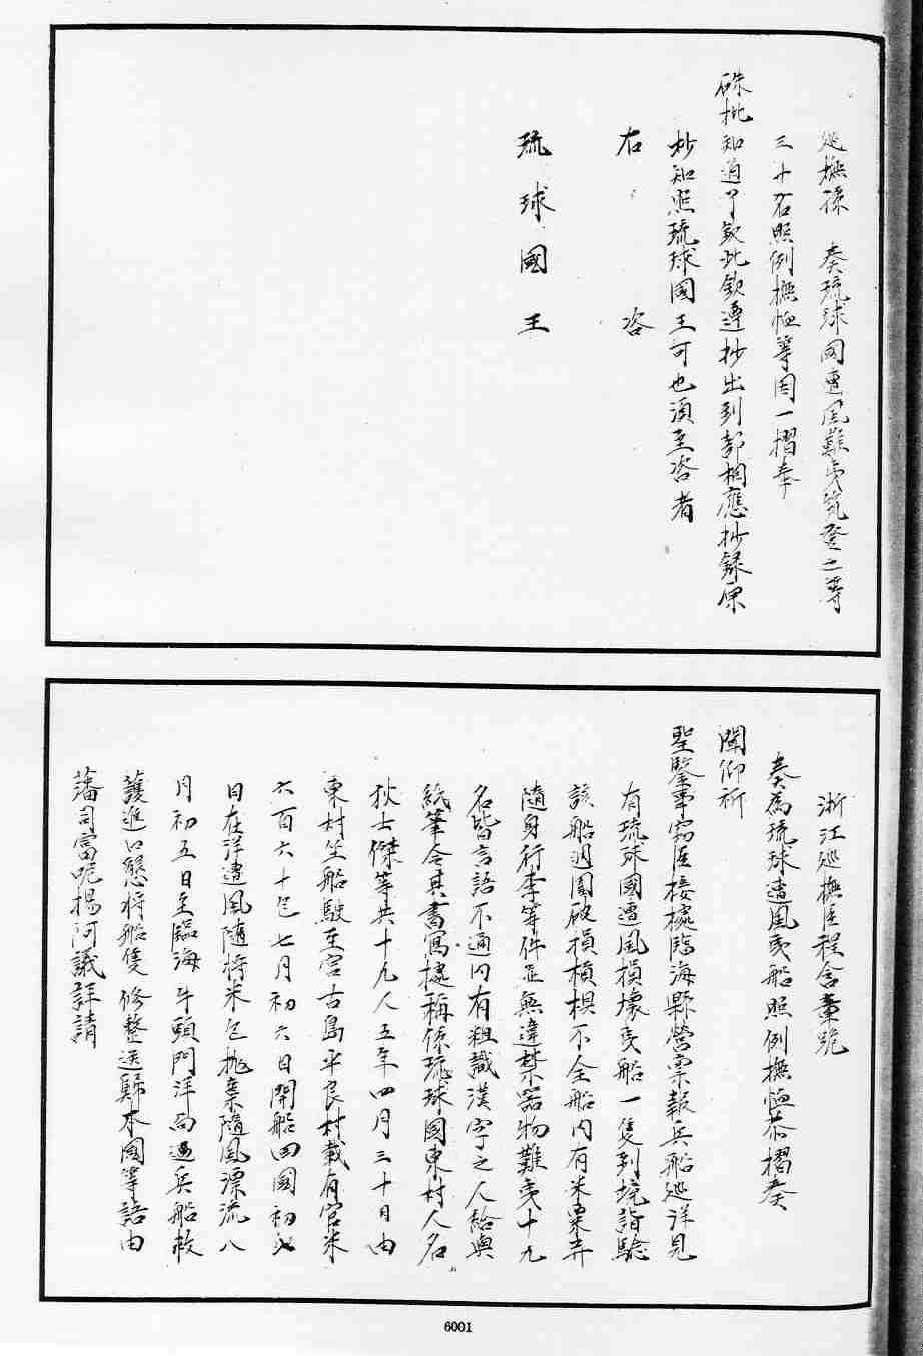 巡撫孫　奏琉球國遭風難夷筑登之等
三十名照例撫恤等因一摺奉
硃批知道了欽此欽遵抄出到部相應抄錄原
抄知照琉球國王可也須至咨者
右　咨
琉球國王
浙江巡撫臣程含章跪
奏為琉球遭風夷船照例撫恤恭摺奏
聞仰祈
聖鑒事竊臣接據臨海縣營稟報兵船巡洋見
有琉球國遭風損壞夷船一隻到境詣驗
該船週圍破損槓椇不全船內有米粟并
隨身行李等件並無違禁器物難夷十九
名皆言語不通內有粗識漢字之人給與
紙筆令其書寫據稱係琉球國東村人名
狄士傑等共十九人五年四月三十日由
東村坐船駛至宮古島平良村載有官米
六百六十包七月初六日開船回國初七
日在洋遭風隨將米包拋棄隨風漂流八
月初五日至臨海牛頭門洋面遇兵船救
護進口懇將船隻修整送歸本國等語由
藩司富呢揚阿議詳請
6001